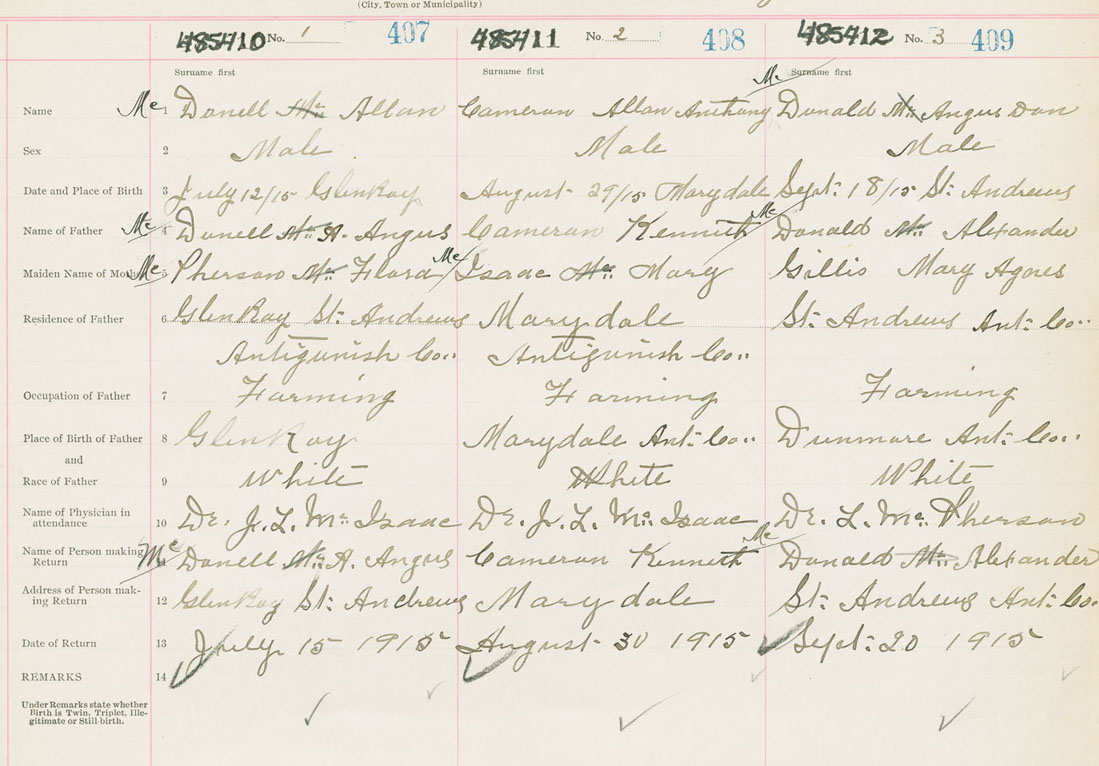 (City, Town or Municipality)
485410 No. 1 407 485411 No. 2 408 485412 No. 3 409
Surname first Surname first Mc Surname first
Name Mc 1 Donell Mc Allan Cameron Allan Anthony Donald Mc Angus Dan
Sex 2 Male Male Male
Date and Place of Birth 3 July 12/15 GlenRoy August 29/15 Marydale Sept: 18/15 St: Andrews
Name of Father Mc 4 Donell Mc A. Angus Cameron Kenneth Mc Donald Mc Alexander
Maiden Name of Mother Mc 5 Pherson Mc Flora Mc Isaac Mc Mary Gillis Mary Agnes
Residence of Father 6 GlenRoy St: Andrews Marydale St: Andrews Ant: Co..
Antigonish Co.. Antigonish Co..
Occupation of Father 7 Farming Farming Farming
Place of Birth of Father 8 GlenRoy Marydale Ant: Co.. Dunmore Ant: Co..
and
Race of Father 9 White White White
Name of Physician in
attendance 10 Dr. J. L. Mc Isaac Dr. J. L. Mc Isaac Dr. L. Mc Pherson
Name of Person making
Return Mc 11 Donell Mc A. Angus Cameron Kenneth Mc Donald Mc Alexander
Address of Person mak-
ing Return 12 GlenRoy St: Andrews Marydale St: Andrews Ant: Co.
Date of Return 13 July 15 1915 August 30 1915 Sept: 20 1915
REMARKS 14
Under Remarks state whether
Birth is Twin, Triplet, Ille-
gitimate or Still-birth.